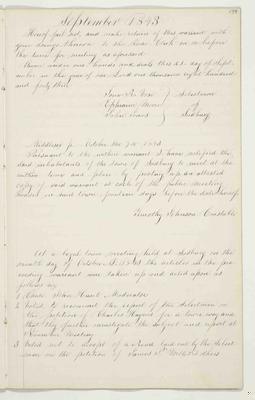 September 1843
Hereof fail not, and make return of this warrant with
your doings thereon to the Town Clerk on or before
the time for meeting as aforesaid.
Given under our hands and seals this 21 day of Sept-
ember in the year of our Lord one thousand eight hundred
and forty three
Selectmen
Ephraim Moore of
John Sudbury
Middlesex ss October the 7th 1843
Pursuant to the within warrant I have notified the
said inhabitants of the town of Sudbury to meet at the
within time and place by posting up an attested
copy of said warrant at each of the public meeting
houses in said town fourteen days before the date hereof.
Timothy Johnson Constable
At a legal town meeting held at Sudbury on the
day of October 1843 the articles in the pre-
ceeding warrant were taken up and acted upon as
follows viz
1 Chose John Hunt Moderator
2 Voted to recommit the report of the Selectmen on
the petition of Charles Haynes for a town way and
that they further investigate the subject and report at
November Meeting
3 Voted not to accept of a road laid out by the Select-
men on the petition of James & others